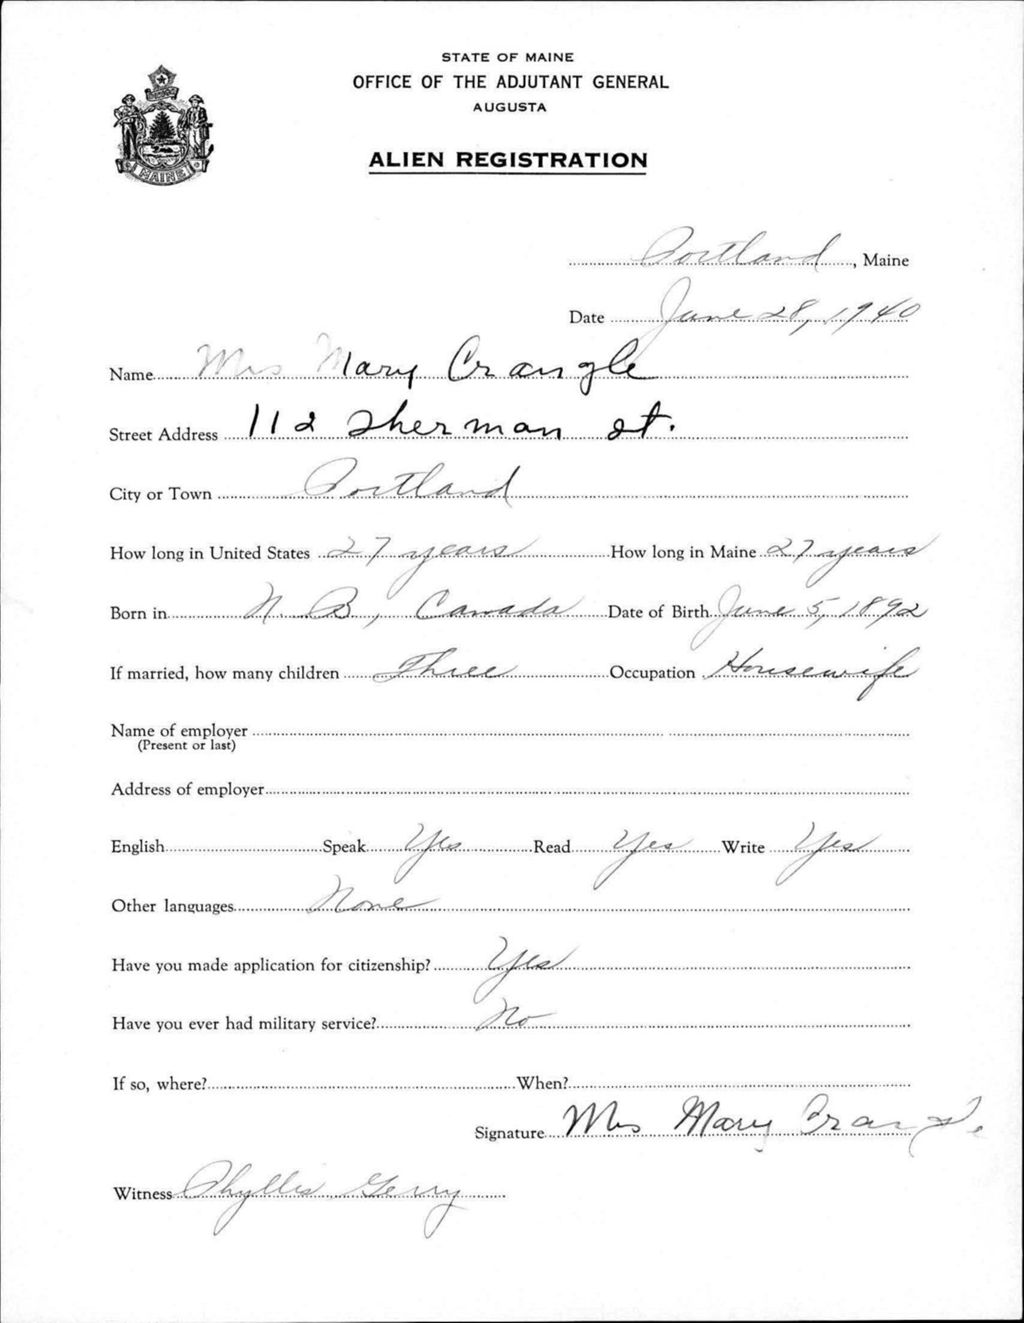 STATE OF MAINE
OFFICE OF THE ADJUTANT GENERAL
AUGUSTA
ALIEN REGISTRATION
MAINE
Portland, Maine
Date June 28, 1940
Name Mrs Mary Crangle
Street Address 112 Sherman St.
City or Town Portland
How long in United States 27 years How long in Maine 27 years
Born in N. B., Canada Date of Birth June 5, 1892
If married, how many children Three Occupation Housewife
Name of employer
(Present or last)
Address of employer
English Speak Yes Read Yes Write Yes
Other languages None
Have you made application for citizenship? Yes
Have you ever had military service? No
If so, where? When?
Signature Mrs Mary Crangle
Witness Phyllis Gerry